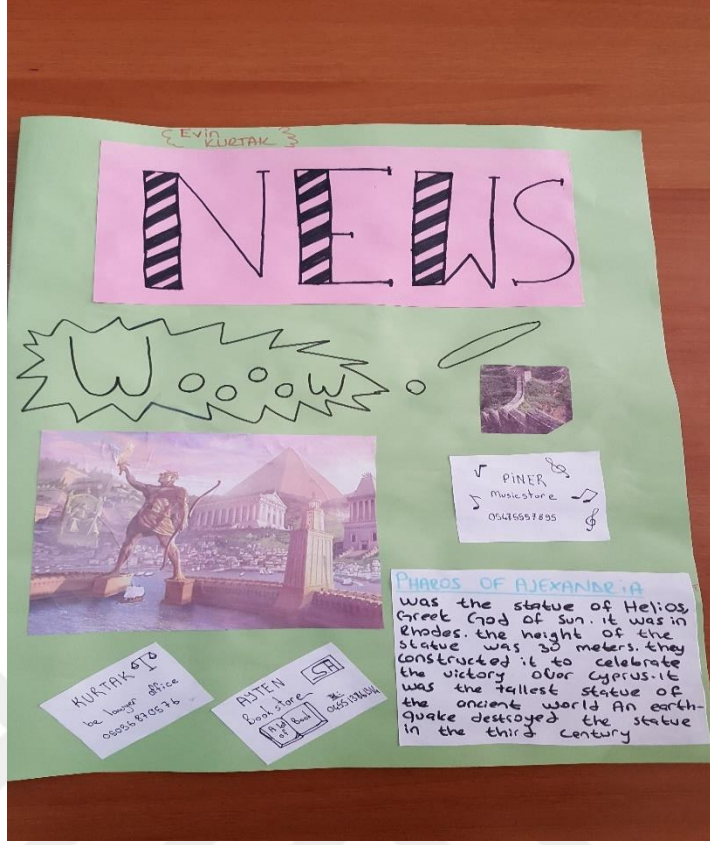 Evin
KURTAK
NEWS
WoooW!
PiNER
Musicstore
05475557895
PHAROS OF ALEXANDRiA
was the statue of Helios,
Greek God of Sun. it was in
Rhodes. the height of the
statue was 30 meters. they
constructed it to celebrate
the victory over Cyprus. it
was the tallest statue of
the ancient world An earth-
quake destroyed the statue
in the third century
KURTAK
be lawyer office
AYTEN
Book store
Book